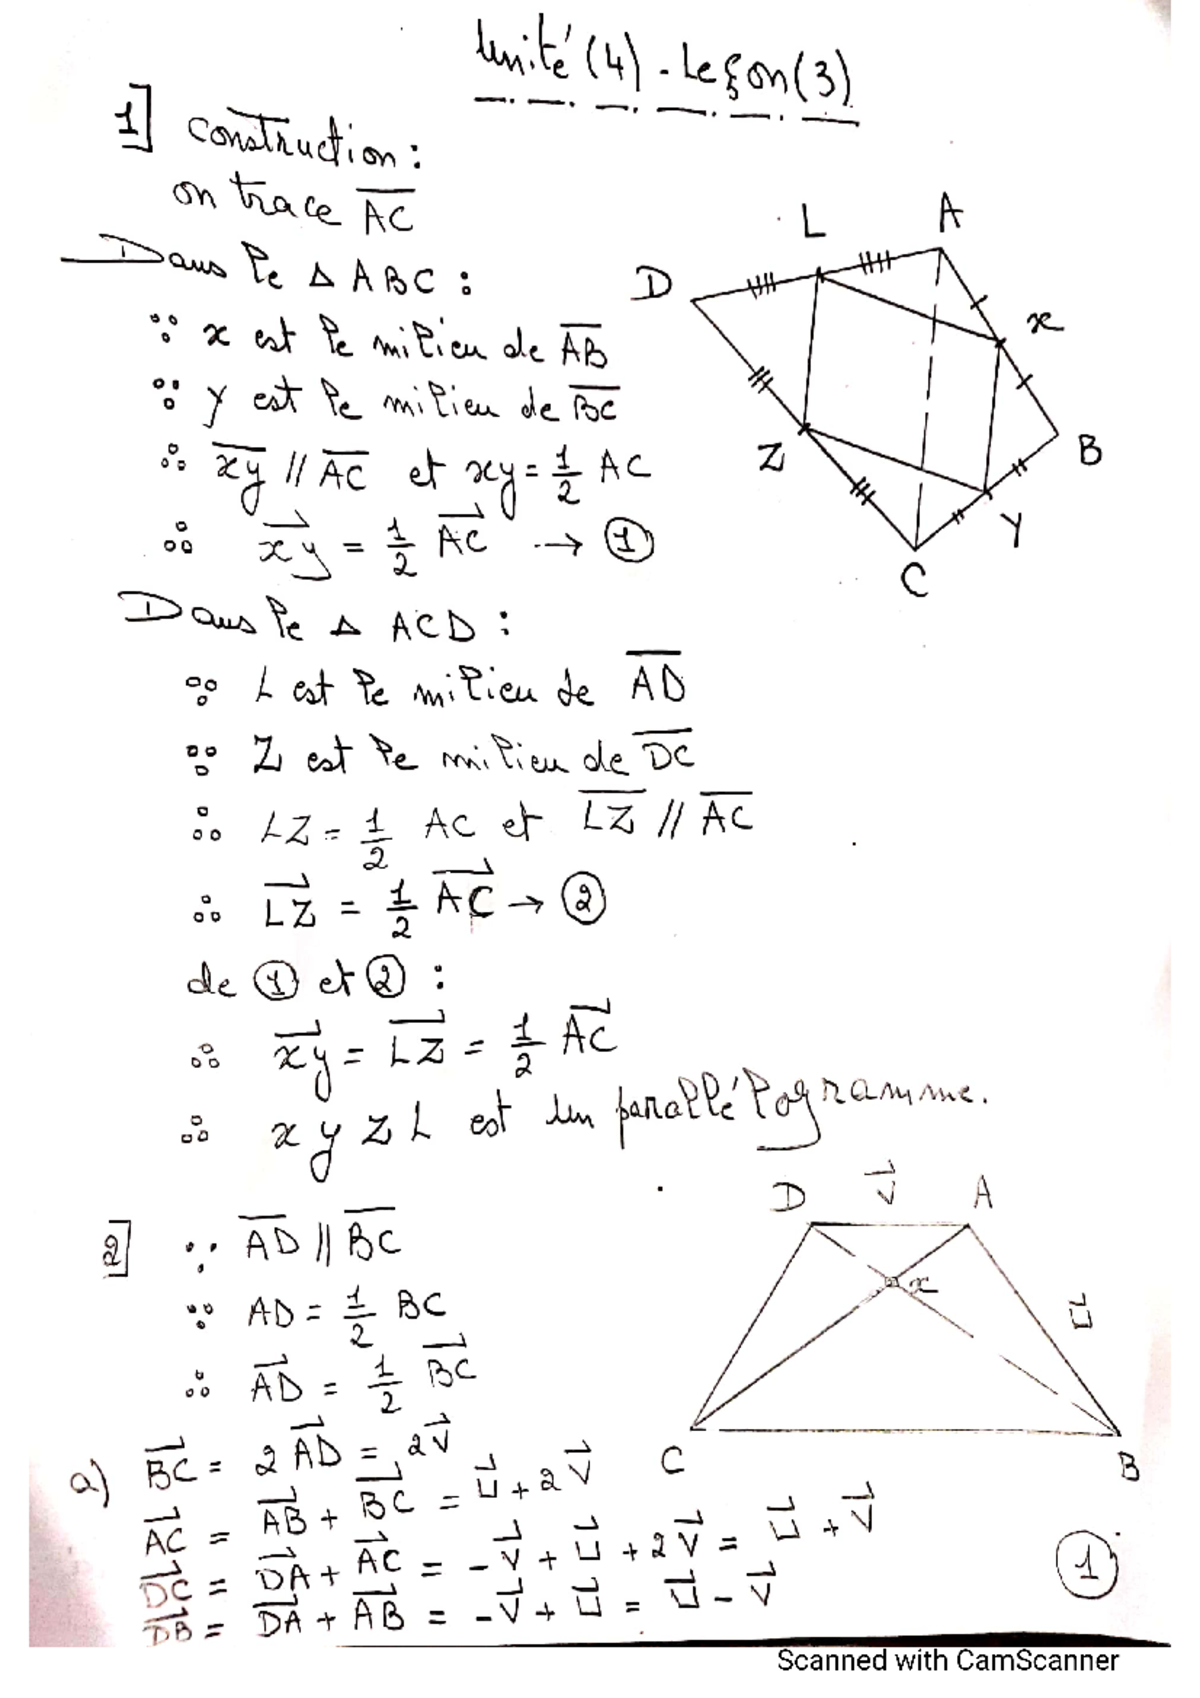 Unité (4) - Leçon (3)
1] construction :
on trace A̅C̅
Dans le △ ABC :
∵ x est le milieu de A̅B̅
∵ y est le milieu de B̅C̅
∴ x̅y̅ // A̅C̅ et xy = 1/2 AC
∴ x⃗y⃗ = 1/2 A⃗C⃗ → ①
Dans le △ ACD :
∵ L est le milieu de A̅D̅
∵ Z est le milieu de D̅C̅
∴ LZ = 1/2 AC et L̅Z̅ // A̅C̅
∴ L⃗Z⃗ = 1/2 A⃗C⃗ → ②
de ① et ② :
∴ x⃗y⃗ = L⃗Z⃗ = 1/2 A⃗C⃗
∴ x y Z L est un parallélogramme.
L A
D
x
Z B
Y
C
2] ∵ A̅D̅ // B̅C̅
∵ AD = 1/2 BC
∴ A⃗D⃗ = 1/2 B⃗C⃗
a) B⃗C⃗ = 2 A⃗D⃗ = 2V⃗
A⃗C⃗ = A⃗B⃗ + B⃗C⃗ = U⃗ + 2V⃗
D⃗C⃗ = D⃗A⃗ + A⃗C⃗ = -V⃗ + U⃗ + 2V⃗ = U⃗ + V⃗
D⃗B⃗ = D⃗A⃗ + A⃗B⃗ = -V⃗ + U⃗ = U⃗ - V⃗
D V⃗ A
x
U⃗
C B
①
Scanned with CamScanner